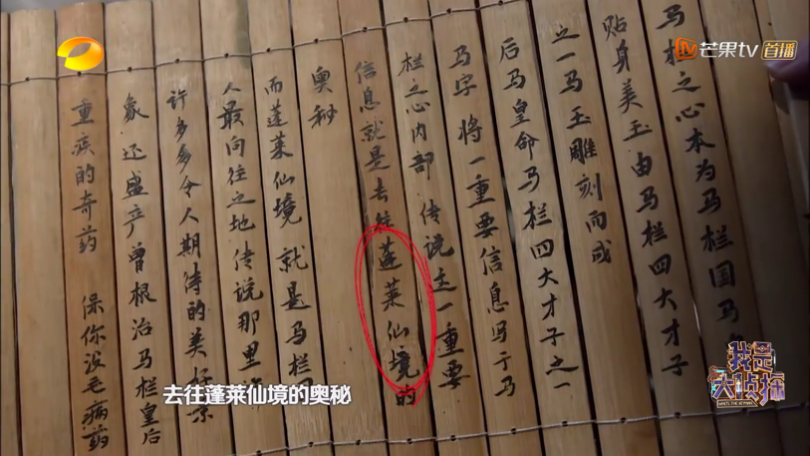 芒果tv 首播
马栏之心本为马栏国马
贴身美玉由马栏四大才子
之一马玉雕刻而成
后马皇命马栏四大才子之一
马字 将一重要信息写于马
栏之心内部 传说这一重要
信息就是去往蓬莱仙境的
奥秘
而蓬莱仙境 就是马栏
人最向往之地 传说那里
许多多令人期待的美好景
象 还盛产曾根治马栏皇后
重疾的奇药 保你没毛病药
去往蓬莱仙境的奥秘
我是
大侦探